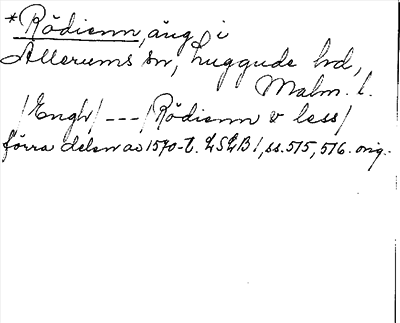 *Rödienn, äng i
Allerums sn, Luggude hd,
Malm. l.
/Engh/ --- /Rödienn v less/
förra delen av 1570-t. LSLB 1, ss. 515, 516. orig.